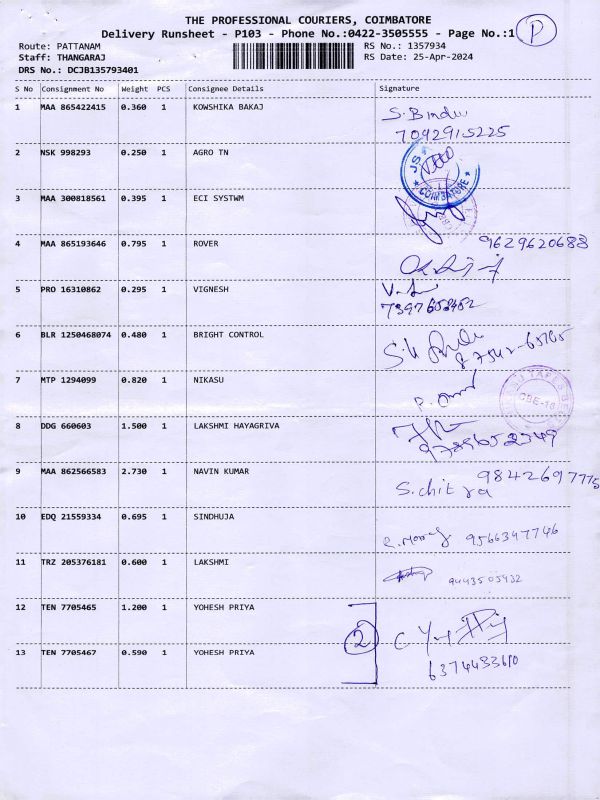 THE PROFESSIONAL COURIERS, COIMBATORE
Delivery Runsheet - P103 - Phone No.:0422-3505555 - Page No.:1 P
Route: PATTANAM RS No.: 1357934
Staff: THANGARAJ RS Date: 25-Apr-2024
DRS No.: DCJB135793401
S No Consignment No Weight PCS Consignee Details Signature
1 MAA 865422415 0.360 1 KOWSHIKA BAKAJ S. Bindu
7092915225
2 NSK 998293 0.250 1 AGRO TN
COIMBATORE
3 MAA 300818561 0.395 1 ECI SYSTWM
4 MAA 865193646 0.795 1 ROVER 9629620688
5 PRO 16310862 0.295 1 VIGNESH
6 BLR 1250468074 0.480 1 BRIGHT CONTROL
7 MTP 1294099 0.820 1 NIKASU
TAPES
CBE-16
8 DDG 660603 1.500 1 LAKSHMI HAYAGRIVA
9 MAA 862566583 2.730 1 NAVIN KUMAR 9842697775
S.chitra
10 EDQ 21559334 0.695 1 SINDHUJA 9566347746
11 TRZ 205376181 0.600 1 LAKSHMI 9443505932
12 TEN 7705465 1.200 1 YOHESH PRIYA
2
13 TEN 7705467 0.590 1 YOHESH PRIYA